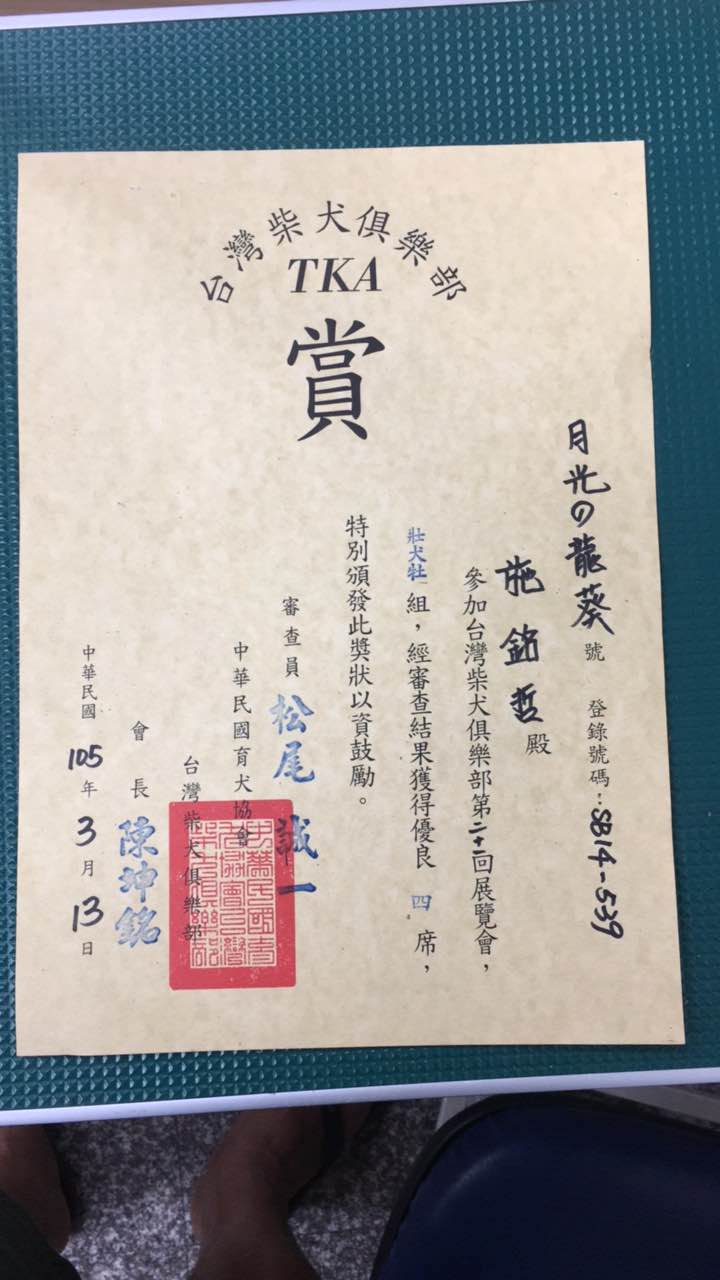 台灣柴犬俱樂部
TKA
賞
月光の龍葵號 登錄號碼:SB14-539
施銘哲殿
參加台灣柴犬俱樂部第二十一回展覽會,
壯犬牡組,經審查結果獲得優良四席,
特別頒發此獎狀以資鼓勵。
審查員 松尾誠一
中華民國育犬協會
台灣柴犬俱樂部
會長 陳坤銘
中華民國105年3月13日